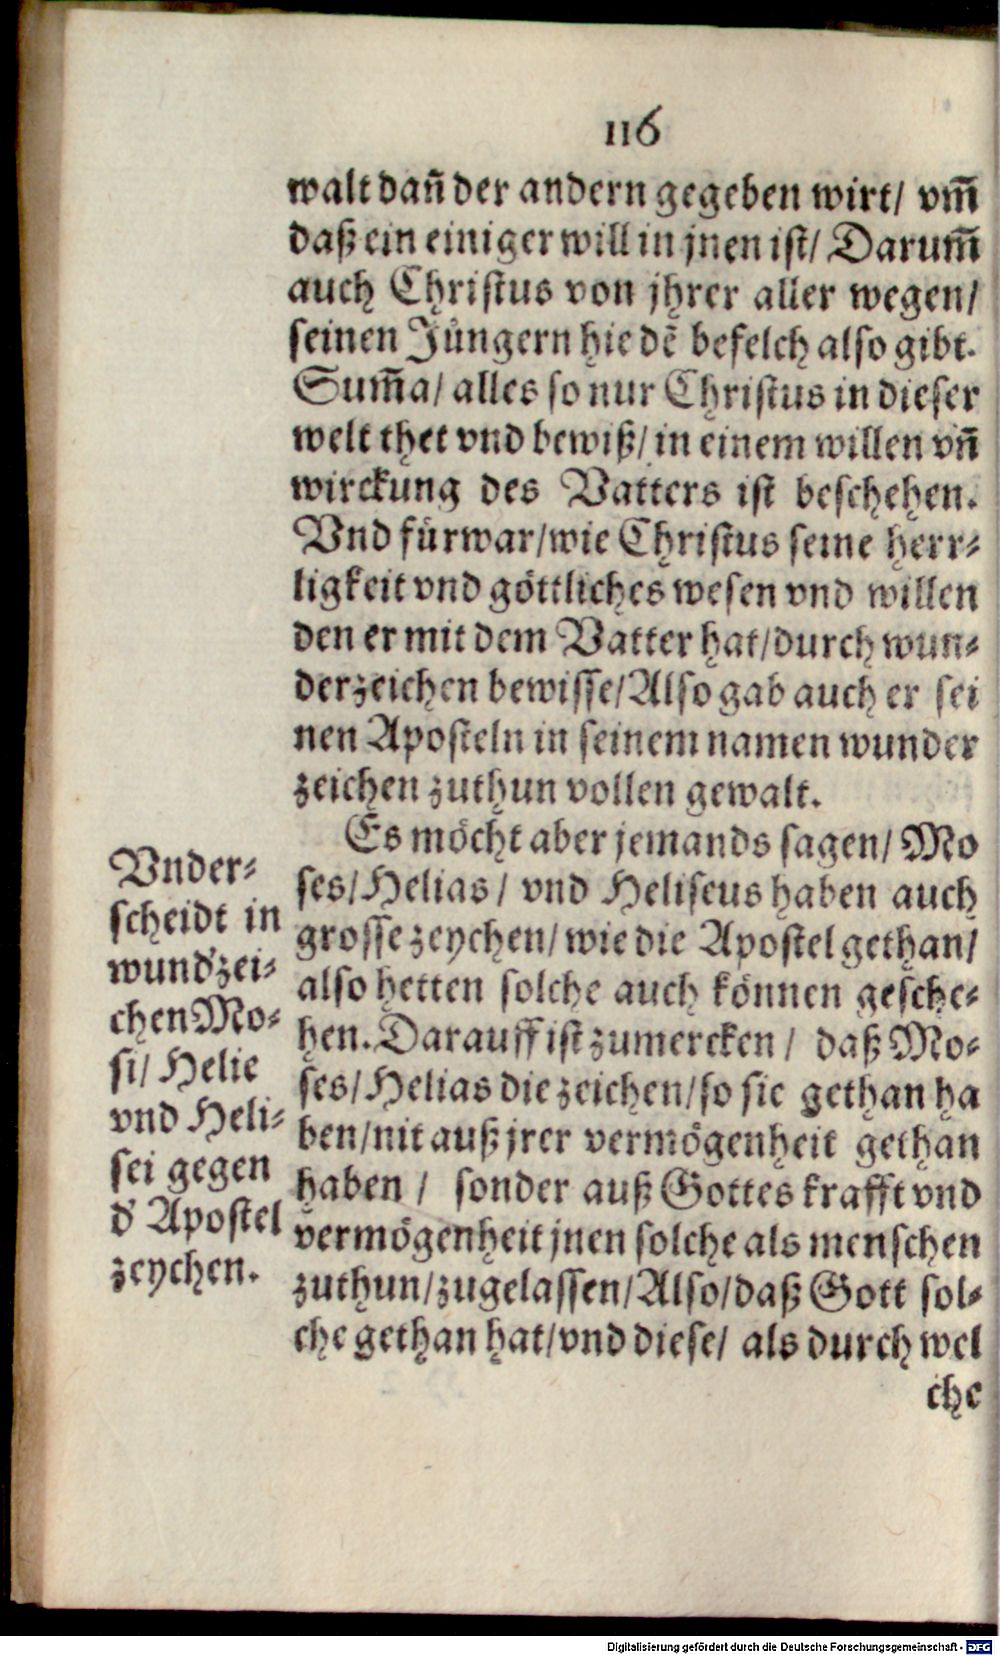 116
walt dañ der andern gegeben wirt/ vm̃
daß ein einiger will in jnen ist/ Darum̃
auch Christus von jhrer aller wegen/
seinen Jüngern hie dẽ befelch also gibt.
Sum̃a/ alles so nur Christus in dieser
welt thet vnd bewiß/ in einem willen vñ
wirckung des Vatters ist beschehen.
Vnd fürwar/wie Christus seine herr-
ligkeit vnd göttliches wesen vnd willen
den er mit dem Vatter hat/durch wun-
derzeichen bewisse/Also gab auch er sei
nen Aposteln in seinem namen wunder
zeichen zuthun vollen gewalt.
Es möcht aber jemands sagen/ Mo
ses/Helias/ vnd Heliseus haben auch
grosse zeychen/ wie die Apostel gethan/
also hetten solche auch können gesche-
hen. Darauff ist zumercken/ daß Mo-
ses/Helias die zeichen/so sie gethan ha
ben/nit auß jrer vermögenheit gethan
haben/ sonder auß Gottes krafft vnd
vermögenheit jnen solche als menschen
zuthun/zugelassen/Also/daß Gott sol-
che gethan hat/vnd diese/ als durch wel
che
Vnder-
scheidt in
wund'zei-
chen Mo-
si/ Helie
vnd Heli-
sei gegen
d' Apostel
zeychen.
Digitalisierung gefördert durch die Deutsche Forschungsgemeinschaft - DFG